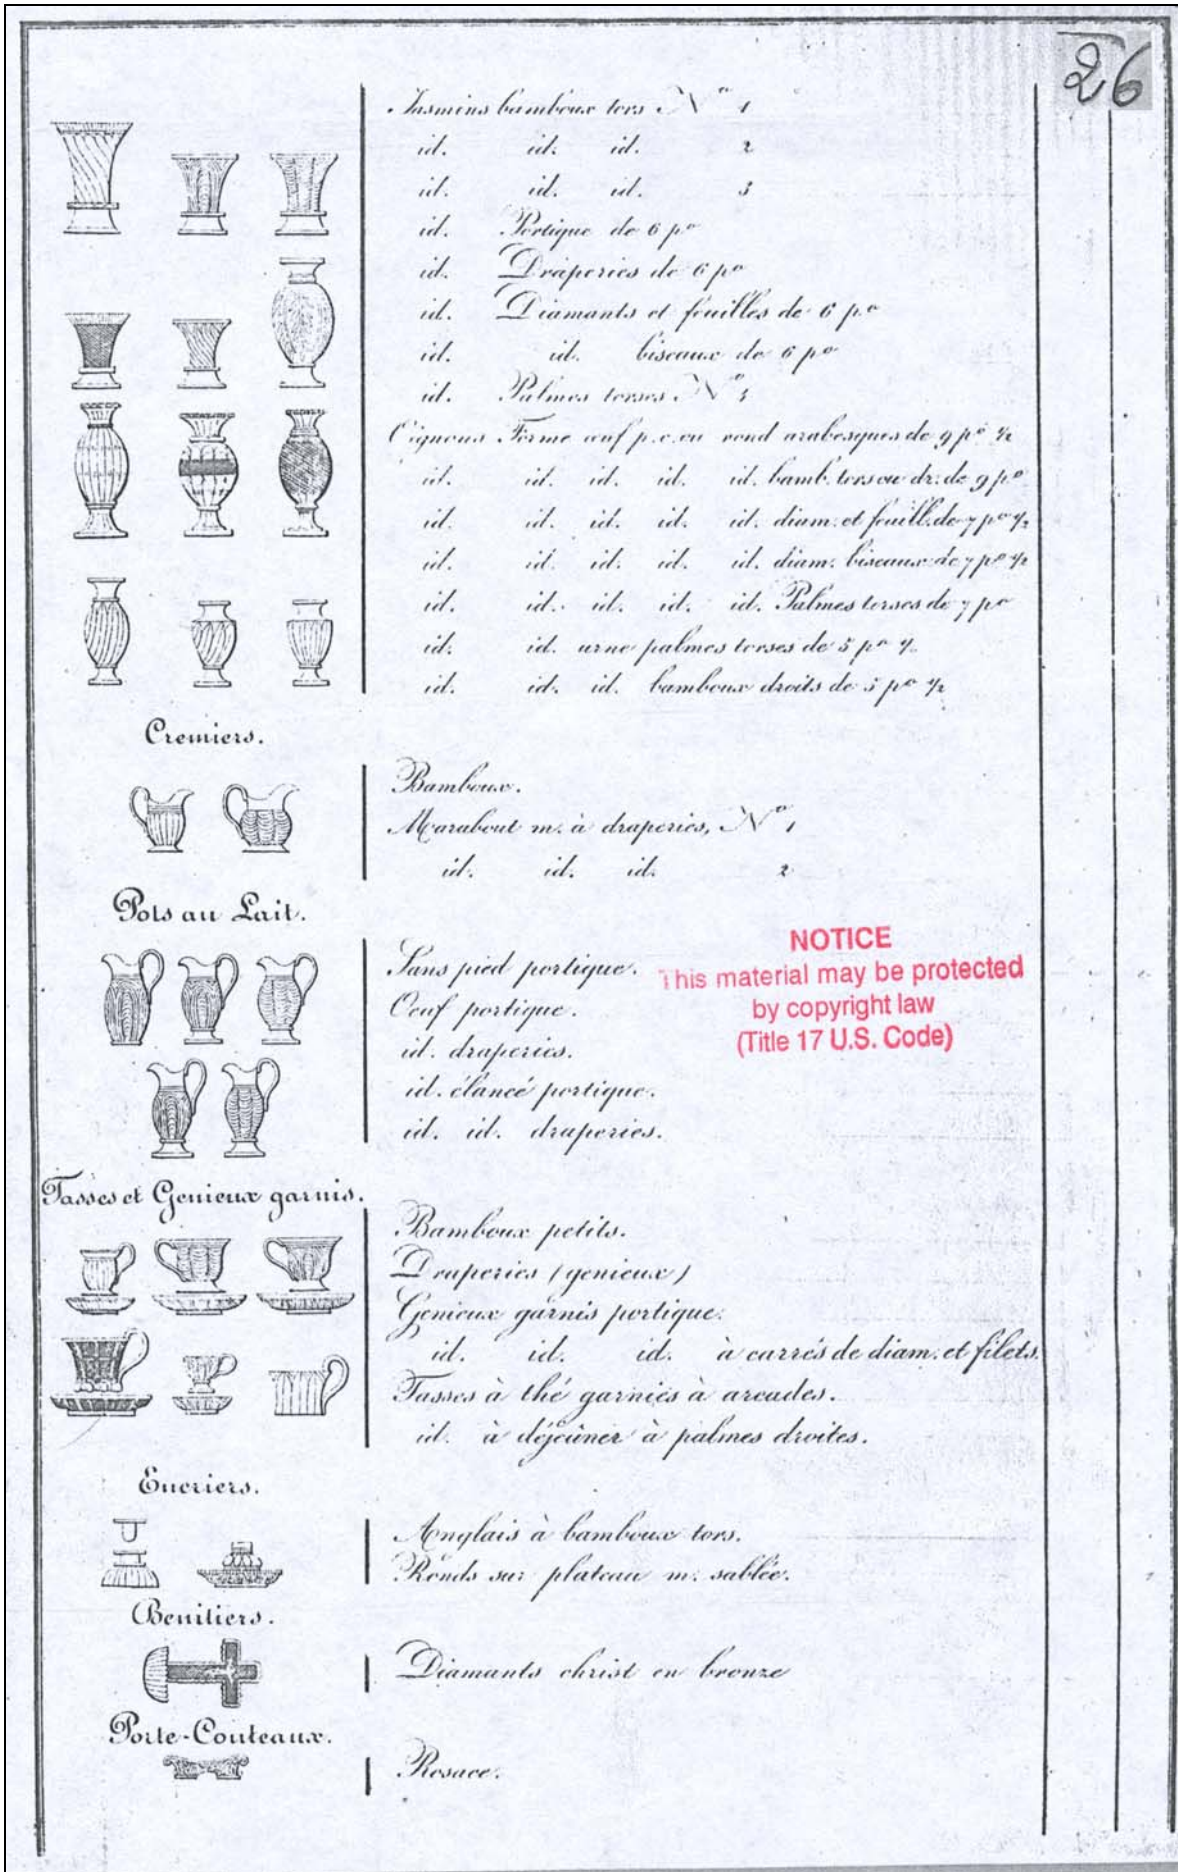 26
Jasmins bamboux tors N° 1
id. id. id. 2
id. id. id. 3
id. Portique de 6 po
id. Draperies de 6 po
id. Diamants et feuilles de 6 po
id. id. biseaux de 6 po
id. Palmes torses N°
Oignons Forme œuf p.c. ou rond arabesques de 9 po ½
id. id. id. id. id. bamb. tors ou dr. de 9 po
id. id. id. id. id. diam. et feuill. de 7 po ½
id. id. id. id. id. diam. biseaux de 7 po ½
id. id. id. id. id. Palmes torses de 7 po
id. id. urne palmes torses de 5 po ½
id. id. id. bamboux droits de 5 po ½
Cremiers.
Bamboux.
Marabout m. à draperies, N° 1
id. id. id. 2
Pots au Lait.
Sans pied portique.
Oeuf portique.
id. draperies.
id. élancé portique.
id. id. draperies.
NOTICE
This material may be protected
by copyright law
(Title 17 U.S. Code)
Tasses et Genieux garnis.
Bamboux petits.
Draperies (genieux)
Genieux garnis portique.
id. id. id. à carrés de diam. et filets.
Tasses à thé garnies à arcades.
id. à déjeûner à palmes droites.
Encriers.
Anglais à bamboux tors.
Ronds sur plateau m. sablée.
Benitiers.
Diamants christ en bronze
Porte-Couteaux.
Rosace.